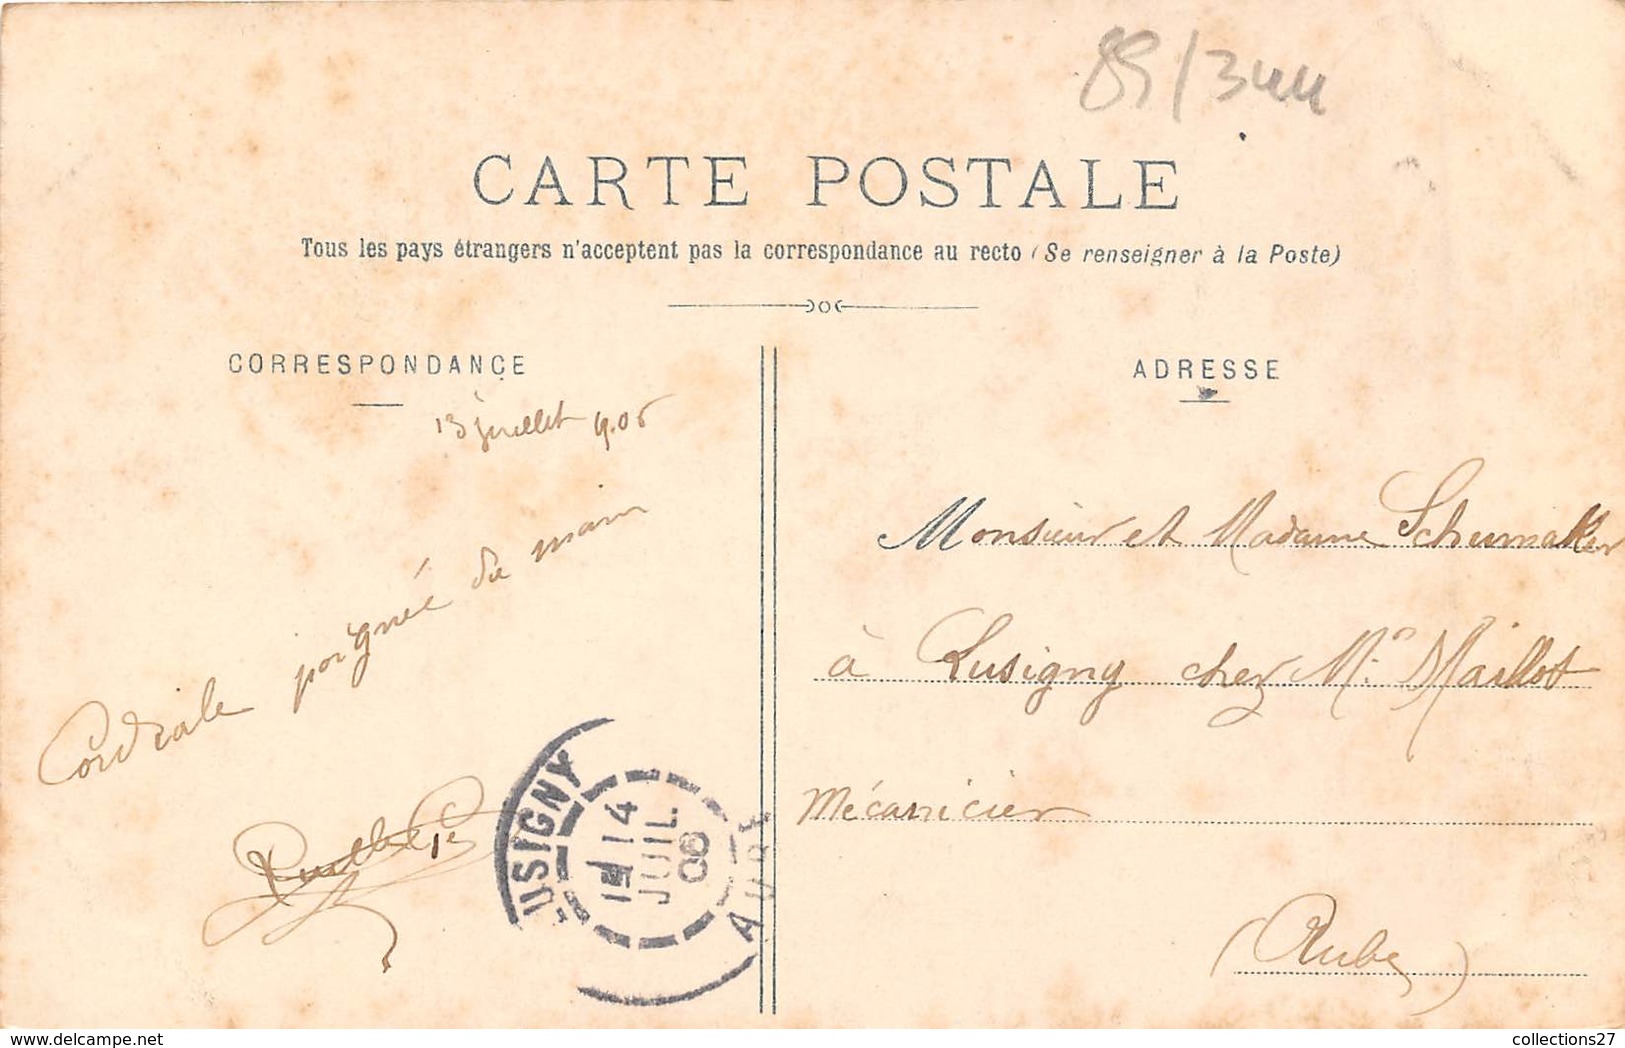 85/344
CARTE POSTALE
Tous les pays étrangers n'acceptent pas la correspondance au recto (Se renseigner à la Poste)
CORRESPONDANCE
13 juillet 906
Cordiale poignée de main
LUSIGNY
14
JUIL
06
AUBE
ADRESSE
Monsieur et Madame Schumaker
à Lusigny chez Mr Maillot
Mécanicien
(Aube)
collections27